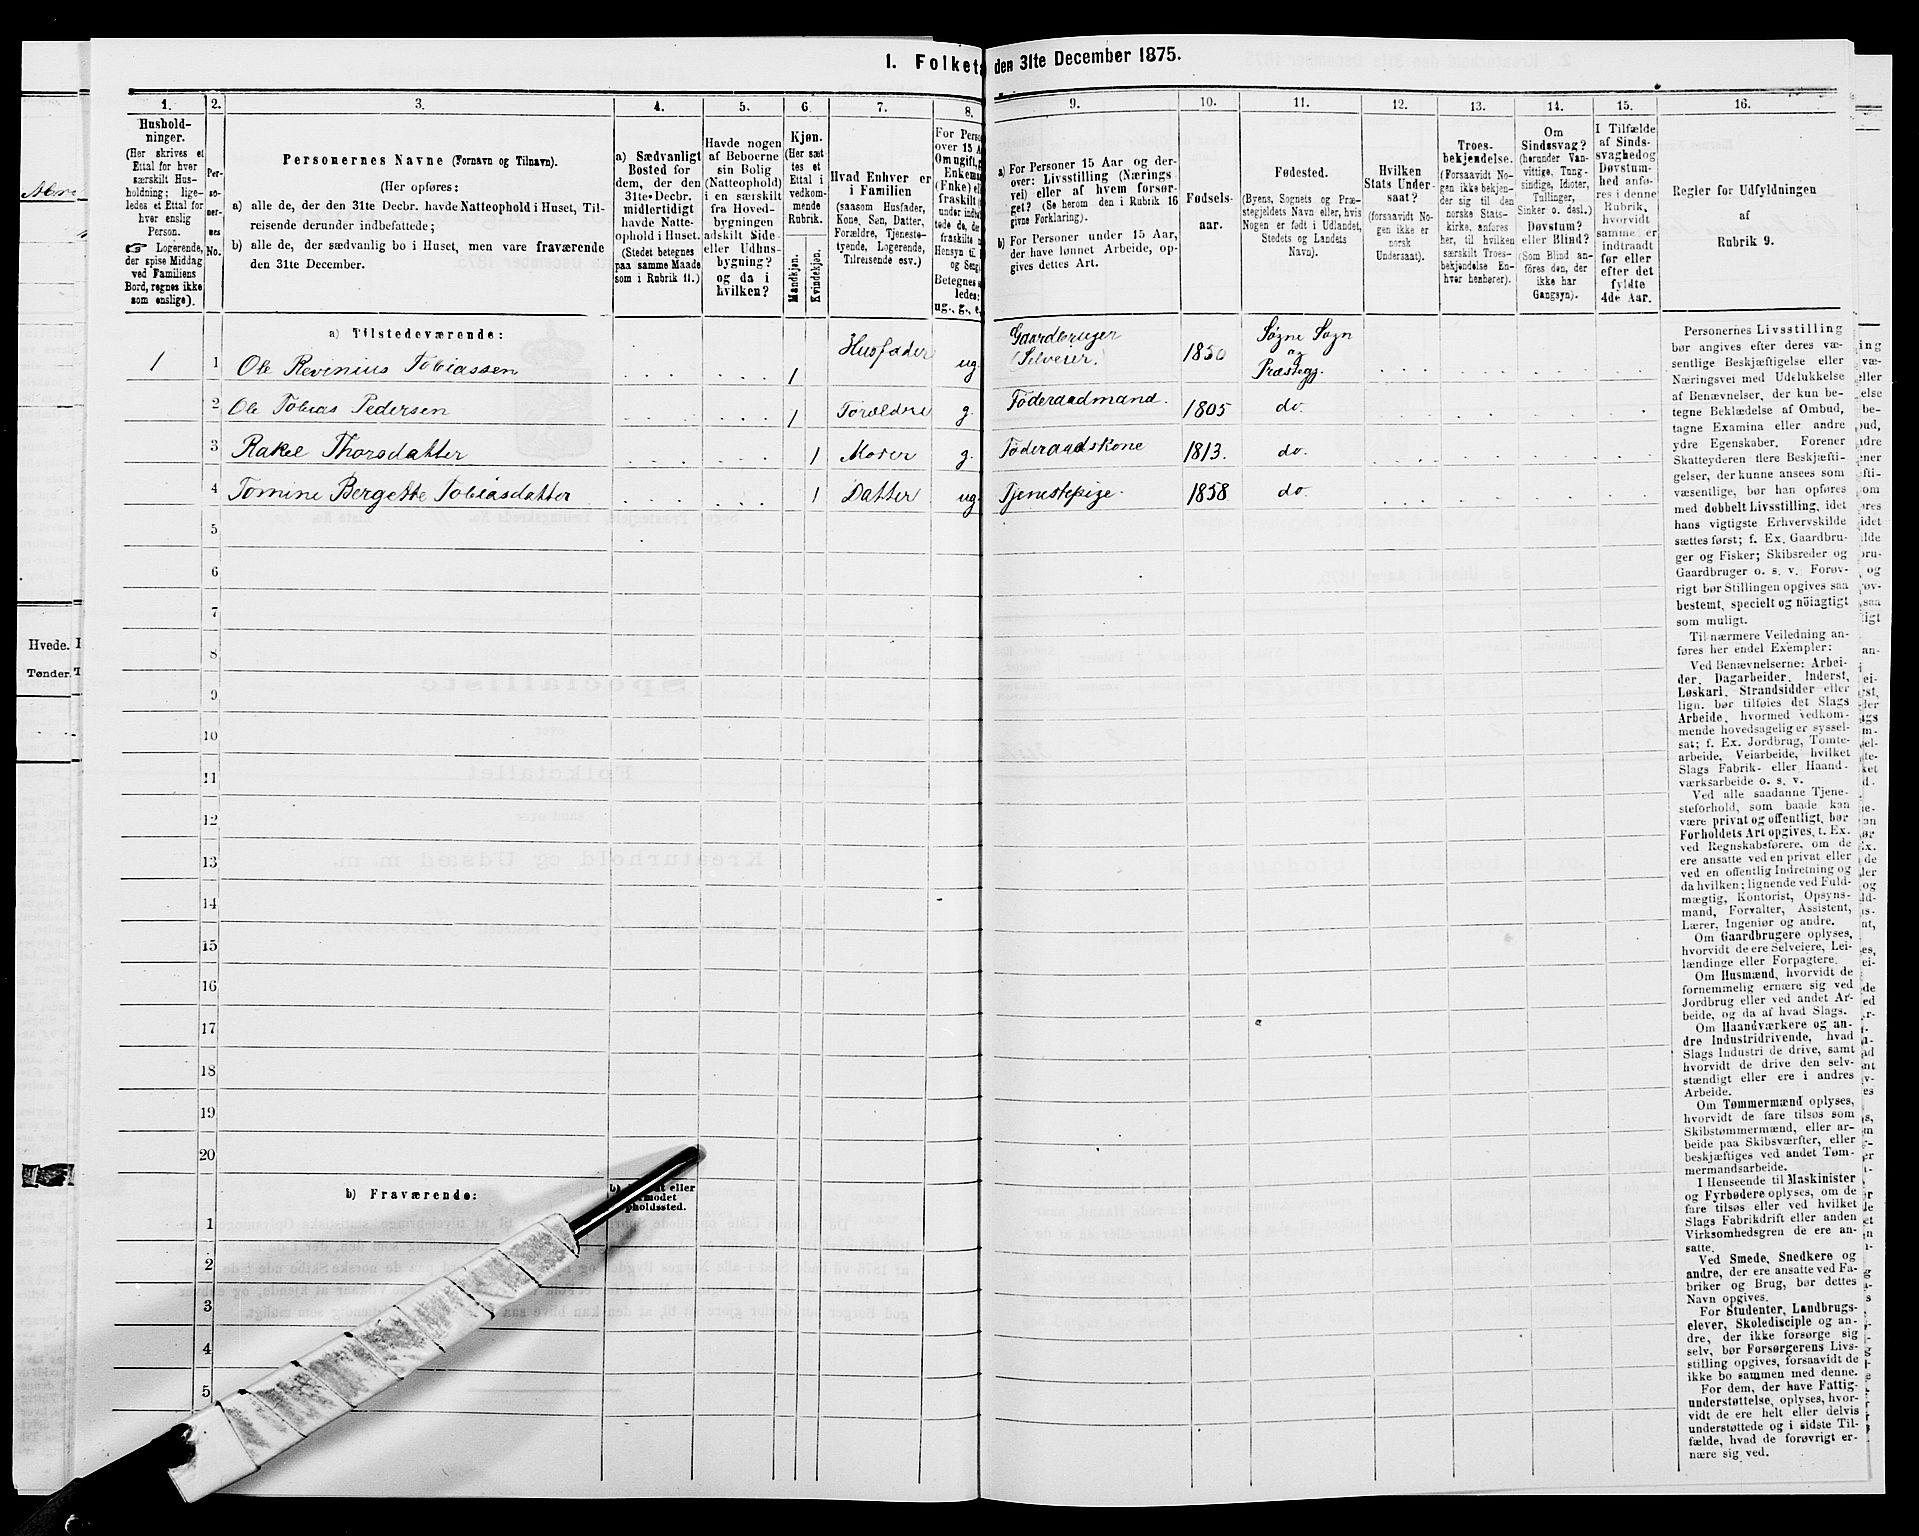 1. Folketa den 31te December 1875.
1. 2. 3. 4. 5. 6. 7. 8. 9. 10. 11. 12. 13. 14. 15. 16.
Hushold-
ninger.
(Her skrives et
Ettal for hver
særskilt Hus-
holdning; lige-
ledes et Ettal for
hver enslig
Person.
☞ Logerende,
der spise Middag
ved Familiens
Bord, regnes ikke
som enslige).
Per-
so-
ner-
nes
No.
Personernes Navne (Fornavn og Tilnavn).
(Her opføres:
a) alle de, der den 31te Decbr. havde Natteophold i Huset, Til-
reisende derunder indbefattede;
b) alle de, der sædvanlig bo i Huset, men vare fraværende
den 31te December.
a) Sædvanligt
Bosted for
dem, der den
31te Decbr.
midlertidigt
havde Natte-
ophold i Huset.
(Stedet betegnes
paa samme Maade
som i Rubrik 11.)
Havde nogen
af Beboerne
sin Bolig
(Natteophold)
i en særskilt
fra Hoved-
bygningen
adskilt Side-
eller Udhus-
bygning?
og da i
hvilken?
Kjøn.
(Her sæt-
tes et
Ettal i
vedkom-
mende
Rubrik.
Mandkjøn.
Kvindekjøn.
Hvad Enhver er
i Familien
(saasom Husfader,
Kone, Søn, Datter,
Forældre, Tjeneste-
tyende, Logerende,
Tilreisende osv.)
For Perso
over 15 A
Om ugift, g
Enkem
(Enke) el
fraskilt
under indbef
tede de, der
fraskilte
Hensyn til
og Seng
Betegnes s
ledes:
ug., g., e.
a) For Personer 15 Aar og der-
over: Livsstilling (Nærings
vei) eller af hvem forsør-
get? (Se herom den i Rubrik 16
givne Forklaring).
b) For Personer under 15 Aar,
der have lønnet Arbeide, op-
gives dettes Art.
Fødsels-
aar.
Fødested.
(Byens, Sognets og Præ-
stegjeldets Navn eller, hvis
Nogen er født i Udlandet,
Stedets og Landets
Navn).
Hvilken
Stats Under-
saat?
(forsaavidt No-
gen ikke er
norsk
Undersaat).
Troes-
bekjendelse.
(Forsaavidt No-
gen ikke bekjen-
der sig til den
norske Stats-
kirke, anføres
her, til hvilken
særskilt Troes-
bekjendelse En-
hver henhører).
Om
Sindssvag?
(herunder Van-
vittige, Tung-
sindige, Idioter,
Tullinger,
Sinker o. desl.)
Døvstum?
eller Blind?
(Som Blind an-
føres den, der
ikke har
Gangsyn).
I Tilfælde
af Sinds-
svaghed og
Døvstum-
hed anfø-
res i denne
Rubrik,
hvorvidt
samme er
indtraadt
før eller
efter det
fyldte
4de Aar.
Regler for Udfyldningen
af
Rubrik 9.
a) Tilstedeværende:
1 1 Ole Revinius Tobiassen 1 Husfader ug. Gaardbruger (Selveier.) 1850 Søgne Sogn og Præstegj.
2 Ole Tobias Pedersen 1 Forældre g. Føderaadmand. 1805 do.
3 Rakel Thorsdatter 1 Moder g. Føderaadskone 1813. do.
4 Tomine Bergette Tobiasdatter 1 Datter ug. Tjenestepige. 1858 do.
5
6
7
8
9
10
11
12
13
14
15
16
17
18
19
20
b) Fraværende:
1
2
3
4
5
Personernes Livsstilling
bør angives efter deres væ-
sentlige Beskjæftigelse eller
Næringsvei med Udelukkelse
af Benævnelser, der kun be-
tegne Beklædelse af Ombud,
tagne Examina eller andre
ydre Egenskaber. Forener
Skatteyderen flere Beskjæfti-
gelser, der kunne ansees som
væsentlige, bør han opføres
med dobbelt Livsstilling, idet
hans vigtigste Erhvervskilde
sættes først; f. Ex. Gaardbru-
ger og Fisker; Skibsreder og
Gaardbruger o. s. v. Forøv-
rigt bør Stillingen opgives saa
bestemt, specielt og nöiagtigt
som muligt.
Til nærmere Veiledning an-
føres her endel Exempler:
Ved Benævnelserne: Arbei-
der, Dagarbeider, Inderst,
Løskarl, Strandsidder eller
lign. bør tilføies det Slags
Arbeide, hvormed vedkom-
mende hovedsagelig er syssel-
sat; f. Ex. Jordbrug, Tomte-
arbeide, Veiarbeide, hvilket
Slags Fabrik- eller Haand-
værksarbeide o. s. v.
Ved alle saadanne Tjene-
steforhold, som baade kan
være privat og offentligt, bør
Forholdets Art opgives, t. Ex.
ved Regnskabsførere, om de
ere ansatte ved en privat eller
ved en offentlig Indretning og
da hvilken; lignende ved Fuld-
mægtig, Kontorist, Opsyns-
mand, Forvalter, Assistent,
Lærer, Ingeniør og andre.
Om Gaardbrugere oplyses,
hvorvidt de ere Selveiere, Lei-
lændinge eller Forpagtere.
Om Husmænd, hvorvidt de
fornemmelig ernære sig ved
Jordbrug eller ved andet Ar-
beide, og da af hvad Slags.
Om Haandværkere og an-
dre Industridrivende, hvad
Slags Industri de drive, samt
hvorvidt de drive den selv-
stændigt eller ere i andres
Arbeide.
Om Tømmermænd oplyses,
hvorvidt de fare tilsøs som
Skibstømmermænd, eller ar-
beide paa Skibsværfter, eller
beskjæftiges ved andet Tøm-
mermandsarbeide.
I Henseende til Maskinister
og Fyrbødere oplyses, om de
fare tilsøs eller ved hvilket
Slags Fabrikdrift eller anden
Virksomhedsgren de ere an-
satte.
Ved Smede, Snedkere og
andre, der ere ansatte ved Fa-
briker og Brug, bør dettes
Navn opgives.
For Studenter, Landbrugs-
elever, Skoledisciple og an-
dre, der ikke forsørge sig
selv, bør Forsørgerens Livs-
stilling opgives, forsaavidt de
ikke bo sammen med denne.
For dem, der have Fattig-
understøttelse, oplyses, hvor-
vidt de ere helt eller delvis
understøttede og i sidste Til-
fælde, hvad de forøvrigt er-
nære sig ved.
Hvede.
Tønder.